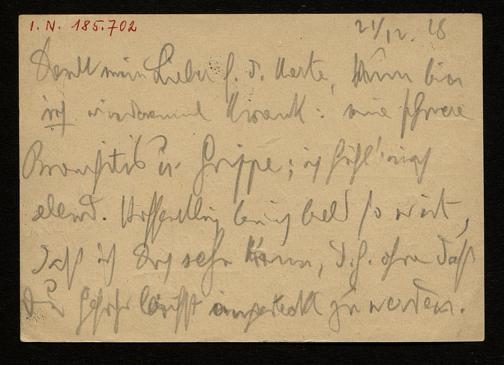 I. N. 185.702
21/12. 28
Dank mein Lieber f. d. Karte, bin
ich wiedermal krank: eine schwere
Bronchitis u. Grippe; ich fühl' mich
elend. Hoffentlich bin ich bald so weit,
daß ich Dich sehn kann, d. h. ohne daß
Du Gefahr läufst angesteckt zu werden.